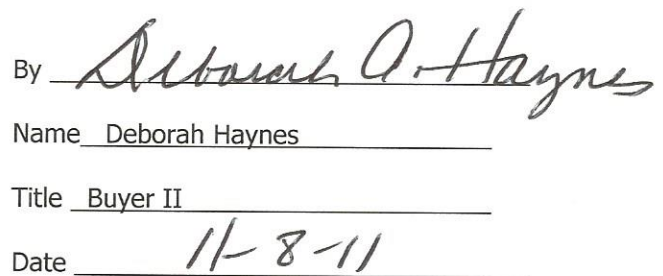 By Deborah A. Haynes
Name Deborah Haynes
Title Buyer II
Date 11-8-11